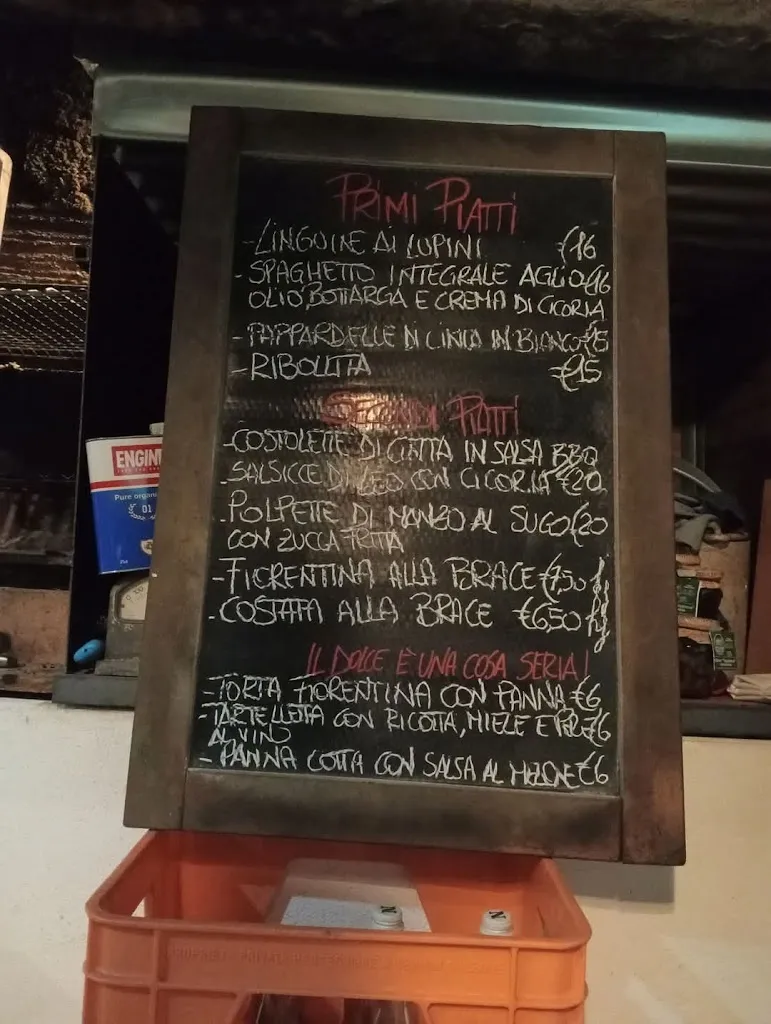 PRIMI PIATTI
- LINGUINE AI LUPINI €16
- SPAGHETTO INTEGRALE AGLIO €16
OLIO, BOTTARGA E CREMA DI CICORIA
- PAPPARDELLE DI CINTA IN BIANCO €15
- RIBOLLITA €15
SECONDI PIATTI
- COSTOLETTE DI CINTA IN SALSA BBQ
- SALSICCE DI LEO CON CICORIA €20
- POLPETTE DI MANZO AL SUGO €20
CON ZUCCA FRITTA
- FIORENTINA ALLA BRACE €7,50
- COSTATA ALLA BRACE €6,50 hg
IL DOLCE È UNA COSA SERIA!
- TORTA FIORENTINA CON PANNA €6
- TARTELLETTA CON RICOTTA, MIELE E €6
AL VINO
- PANNA COTTA CON SALSA AL MELONE €6
ENGIN
Pure organ
01
N
N